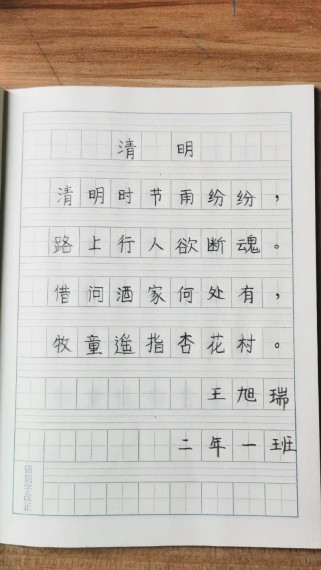 清明
清明时节雨纷纷，
路上行人欲断魂。
借问酒家何处有，
牧童遥指杏花村。
王旭瑞
二年一班
错别字改正